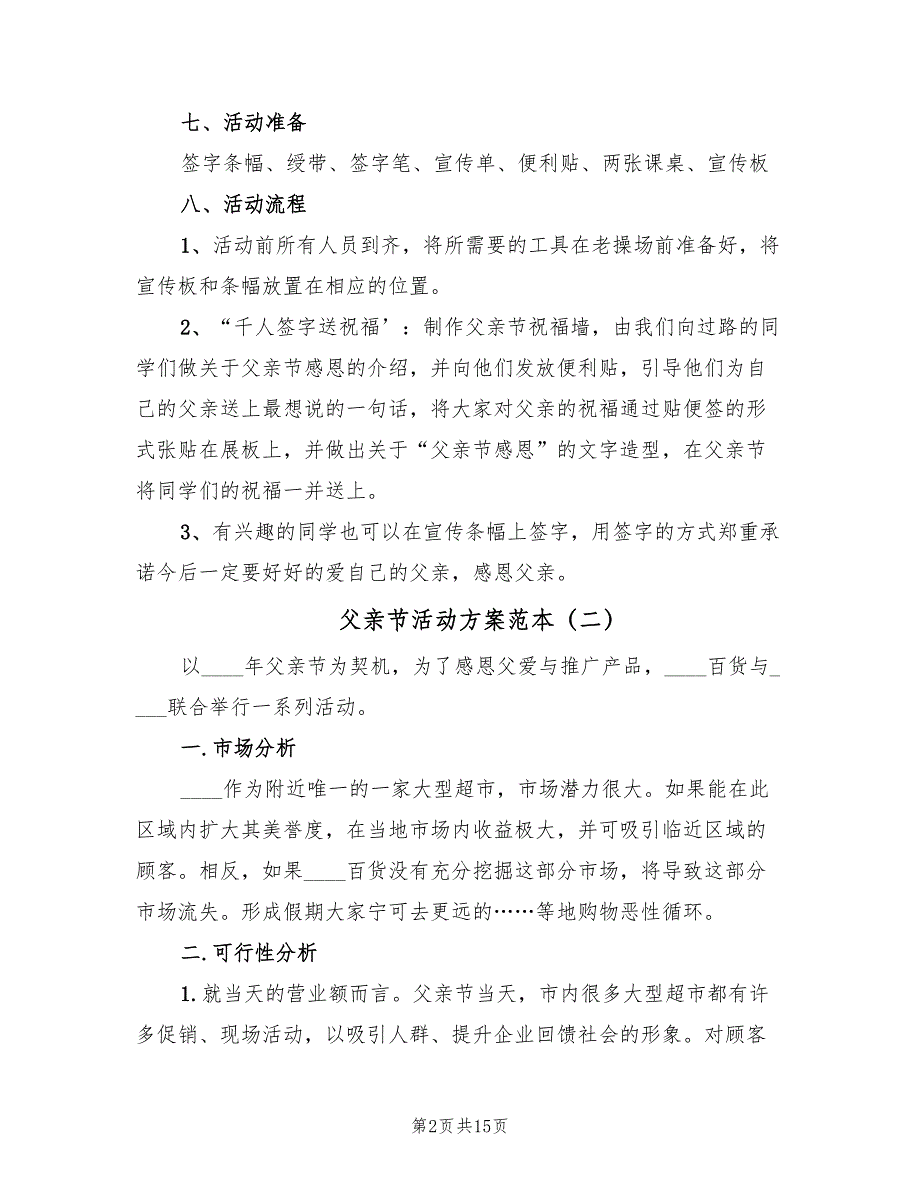 七、活动准备
签字条幅、绶带、签字笔、宣传单、便利贴、两张课桌、宣传板
八、活动流程
1、活动前所有人员到齐，将所需要的工具在老操场前准备好，将
宣传板和条幅放置在相应的位置。
2、“千人签字送祝福’：制作父亲节祝福墙，由我们向过路的同
学们做关于父亲节感恩的介绍，并向他们发放便利贴，引导他们为自
己的父亲送上最想说的一句话，将大家对父亲的祝福通过贴便签的形
式张贴在展板上，并做出关于“父亲节感恩”的文字造型，在父亲节
将同学们的祝福一并送上。
3、有兴趣的同学也可以在宣传条幅上签字，用签字的方式郑重承
诺今后一定要好好的爱自己的父亲，感恩父亲。
父亲节活动方案范本（二）
以____年父亲节为契机，为了感恩父爱与推广产品，____百货与_
___联合举行一系列活动。
一.市场分析
____作为附近唯一的一家大型超市，市场潜力很大。如果能在此
区域内扩大其美誉度，在当地市场内收益极大，并可吸引临近区域的
顾客。相反，如果____百货没有充分挖掘这部分市场，将导致这部分
市场流失。形成假期大家宁可去更远的……等地购物恶性循环。
二.可行性分析
1.就当天的营业额而言。父亲节当天，市内很多大型超市都有许
多促销、现场活动，以吸引人群、提升企业回馈社会的形象。对顾客
第2页共15页